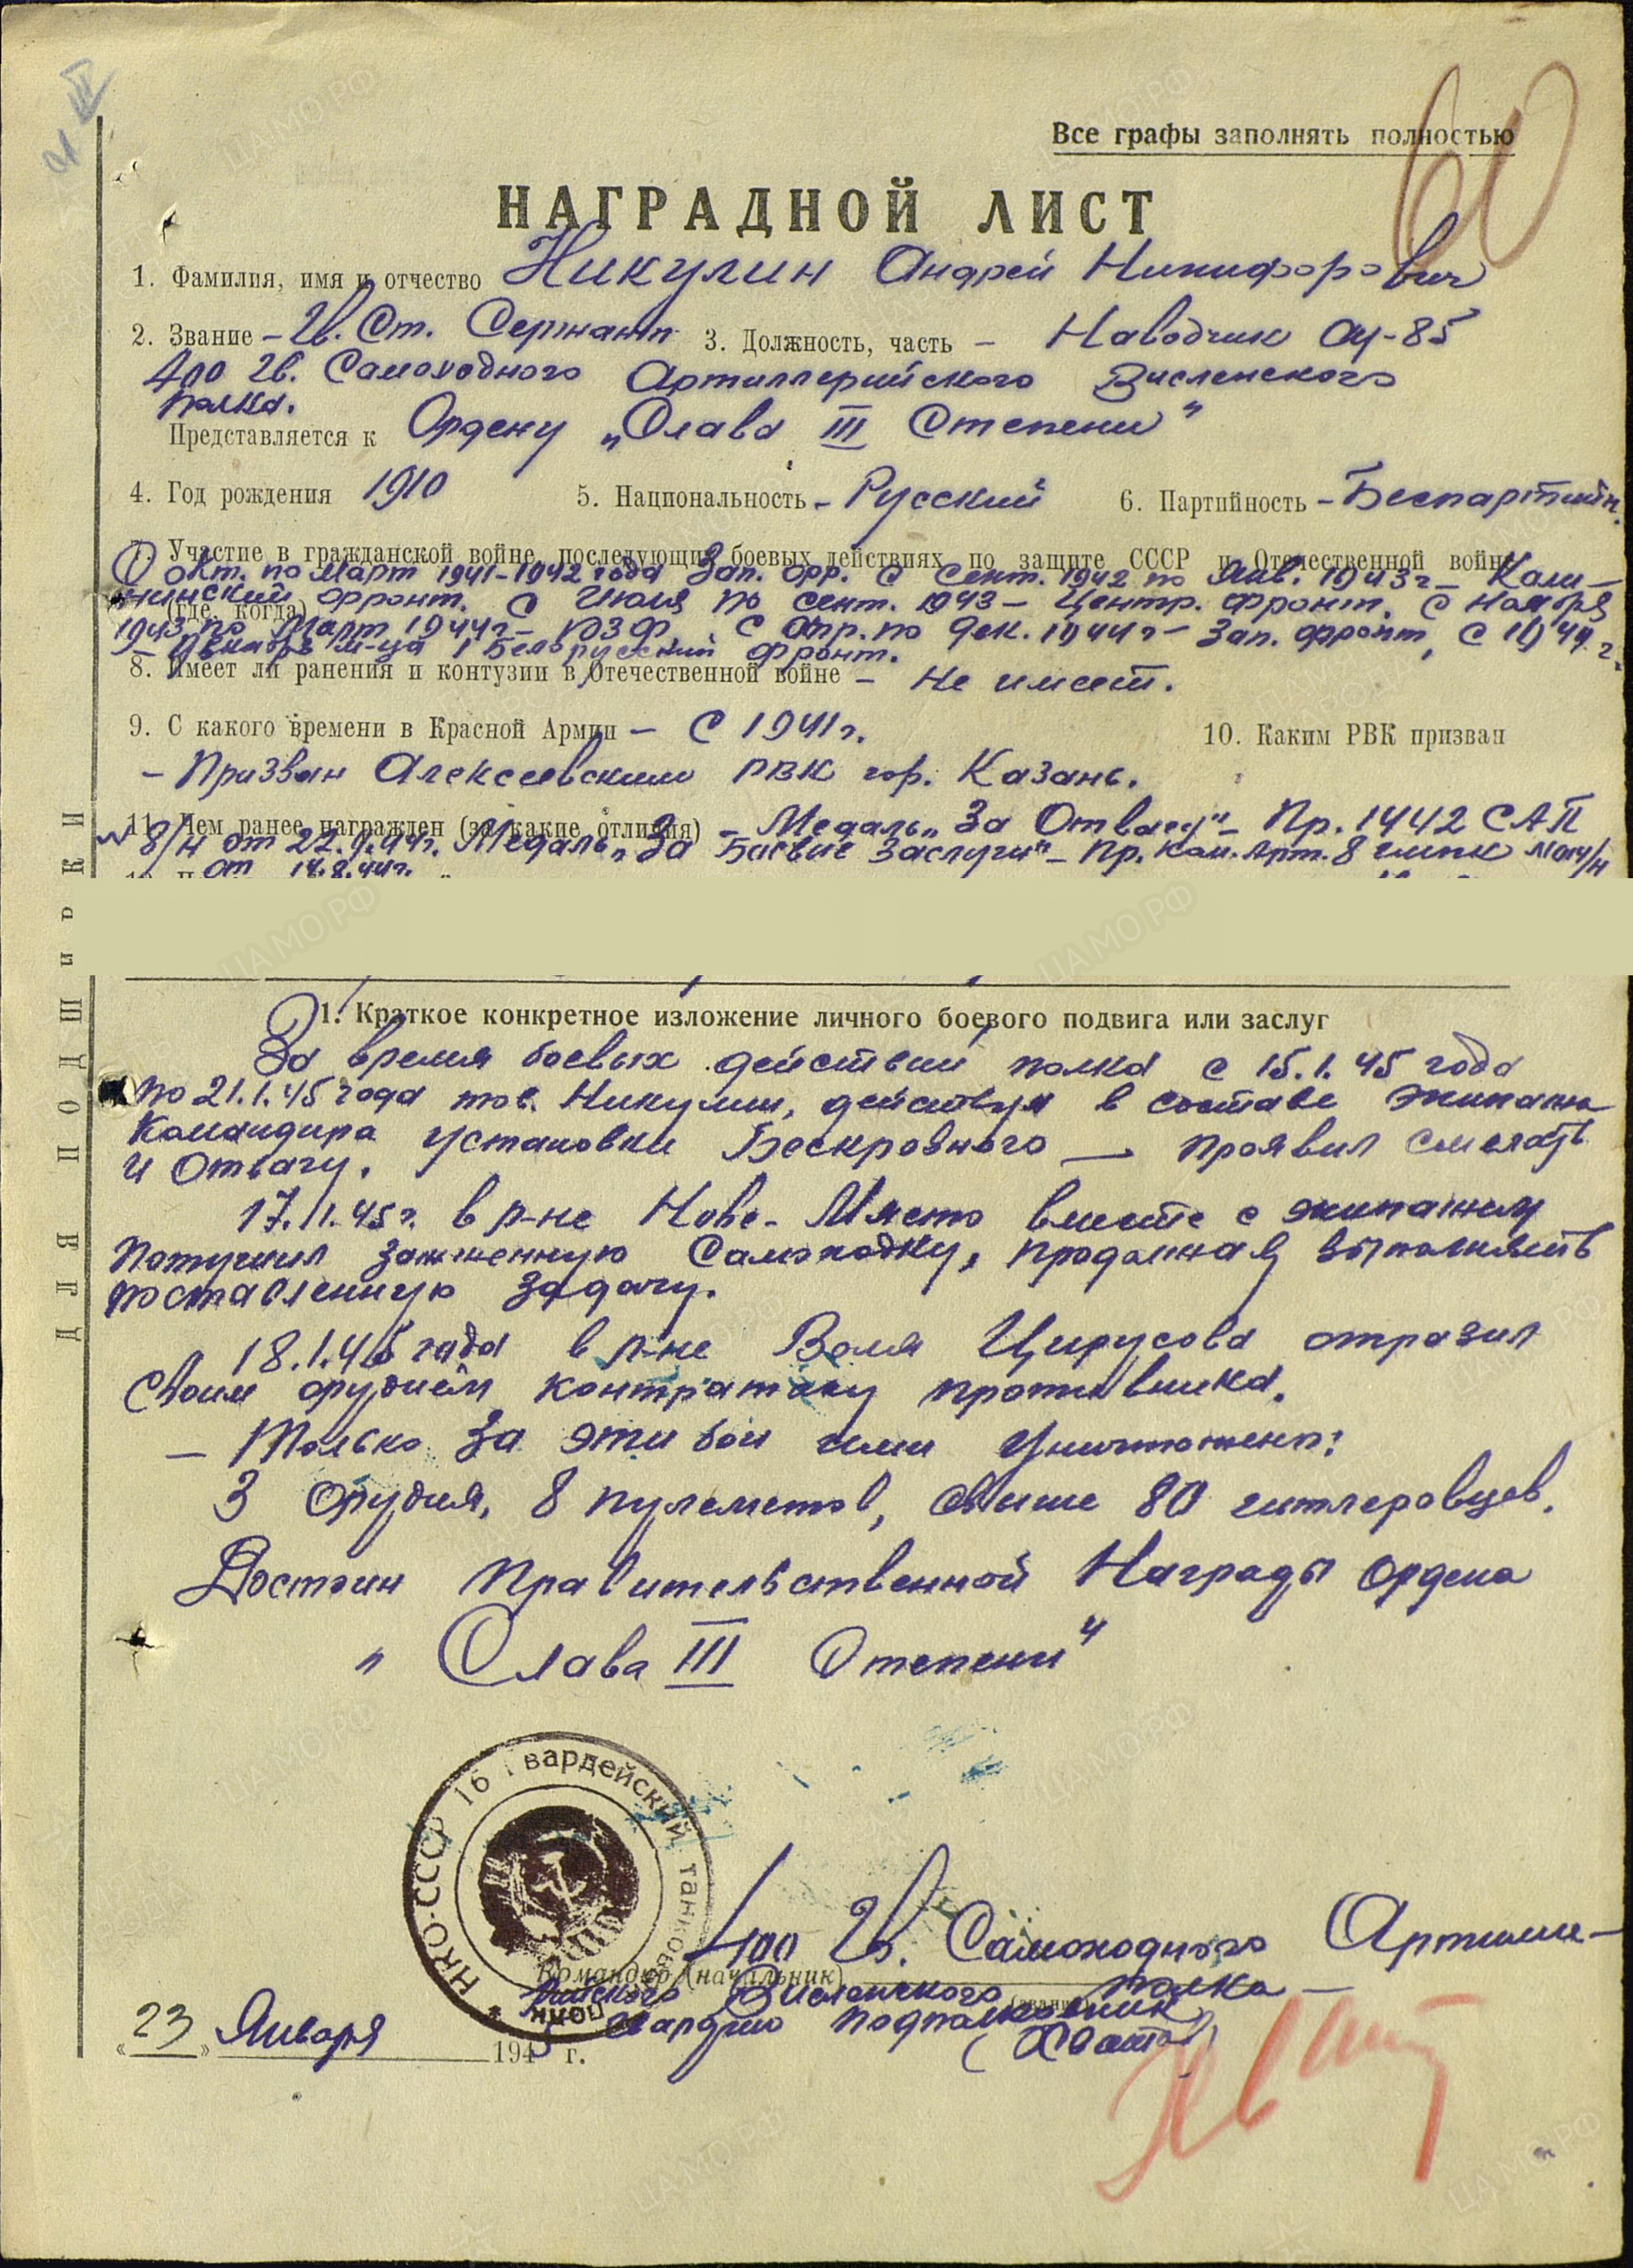 Все графы заполнять полностью
60
НАГРАДНОЙ ЛИСТ
1. Фамилия, имя и отчество Никулин Андрей Никифорович
2. Звание - Гв. Ст. Сержант 3. Должность, часть - Наводчик СУ-85
400 Гв. Самоходного Артиллерийского Висленского
полка.
Представляется к Ордену „Слава III Степени"
4. Год рождения 1910 5. Национальность - Русский 6. Партийность - Беспартийн.
7. Участие в гражданской войне, последующих боевых действиях по защите СССР и Отечественной войне
(где, когда)
С окт. по Март 1941-1942 года Зап. фр. С Сент. 1942 по Янв. 1943 г - Кали-
нинский фронт. С Июля по Сент. 1943 - Центр. Фронт. С Ноября
1943 по Март 1944 г - ПЗФ, С Апр. по Дек. 1944 г - Зап. фронт, С 1944 г.
- Декабрь м-ца 1 Белорусский фронт.
8. Имеет ли ранения и контузии в Отечественной войне - Не имеет.
9. С какого времени в Красной Армии - С 1941 г. 10. Каким РВК призван
- Призван Алексеевским РВК гор. Казань.
11. Чем ранее награжден (за какие отличия) - Медаль „За Отвагу" - Пр. 1442 САП
N 8/н от 22.9.44г. Медаль „За Боевые Заслуги" - Пр. Ком. Арт. 8
от 14.8.44г.
Линия подшивки
1. Краткое конкретное изложение личного боевого подвига или заслуг
За время боевых действий полка с 15.1.45 года
по 21.1.45 года тов. Никулин, действуя в составе экипажа
Командира установки Бескровного — проявил смелость
и Отвагу.
17.1.45 г. в р-не Нове-Място вместе с экипажем
Потушил зажженную Самоходку, продолжая выполнять
поставленную задачу.
18.1.45 года в р-не Воля Цирусова отразил
Своим орудием контратаку противника.
- Только за эти бои ими Уничтожено:
3 Орудия, 8 пулеметов, Свыше 80 гитлеровцев.
Достоин Правительственной Награды Ордена
„Слава III Степени"
НКО-СССР 16 Гвардейский танковый полк
400 Гв. Самоходного Артилле-
Командир (начальник)
рийского Висленского полка -
(звание)
Гвардии Подполковник
(Хватов)
«23» Января 1945 г.
ЦАМО РФ